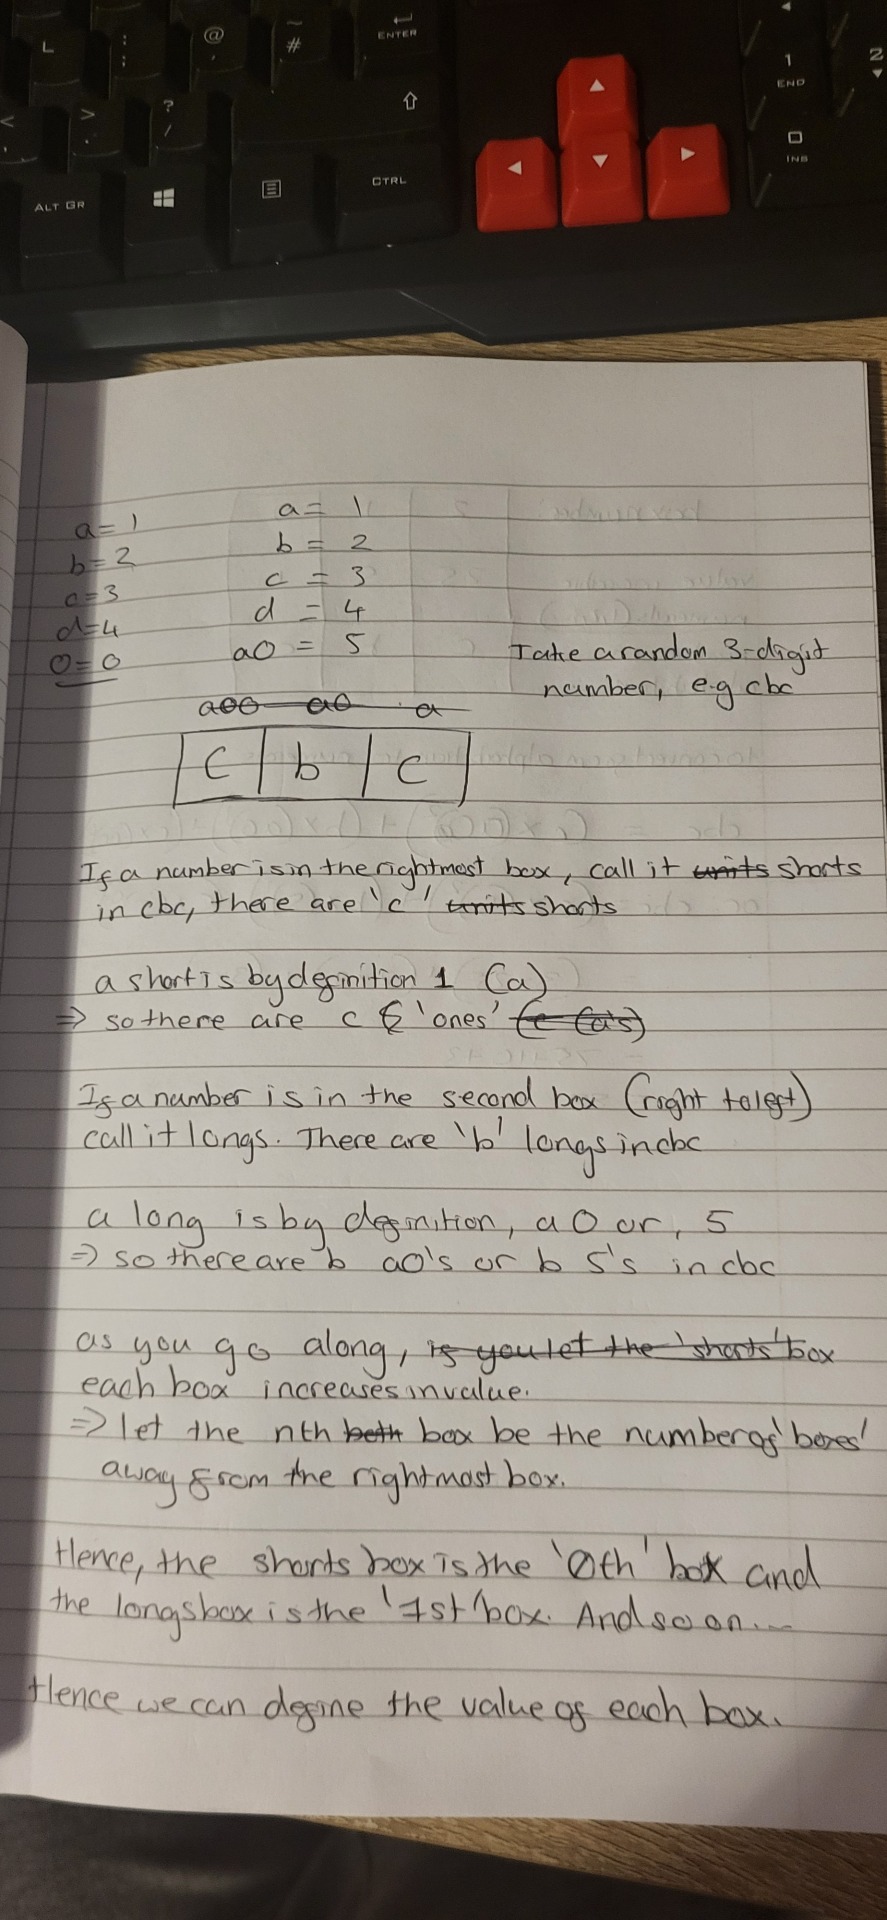 L : ; @ ' ~ # ENTER
< > . ? / ⇧ 1 END 2
ALT GR CTRL 0 INS
a = 1
b = 2
c = 3
d = 4
0 = 0
a = 1
b = 2
c = 3
d = 4
a0 = 5
Take a random 3-digit
number, e.g cbc
a00 a0 a
c b c
If a number is in the rightmost box, call it units shorts
in cbc, there are 'c' units shorts
a short is by definition 1 (a)
⇒ so there are c 'ones' (a's)
If a number is in the second box (right to left)
call it longs. There are 'b' longs in cbc
a long is by definition, a0 or, 5
⇒ so there are b a0's or b 5's in cbc
as you go along, if you let the 'shorts' box
each box increases in value.
⇒ let the nth both box be the number of 'boxes'
away from the rightmost box.
Hence, the shorts box is the '0th' box and
the longs box is the '1st' box. And so on...
Hence we can define the value of each box.